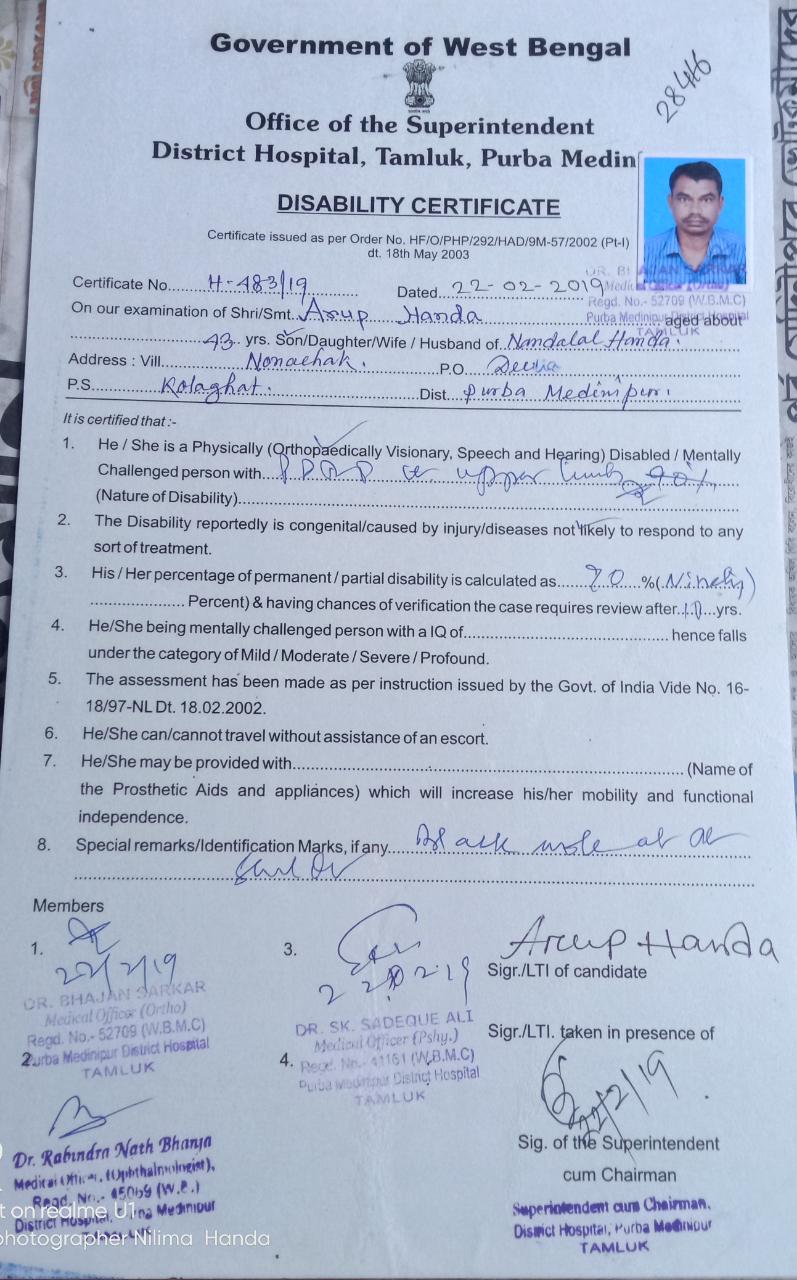 Government of West Bengal
28416
Office of the Superintendent
District Hospital, Tamluk, Purba Medin
DISABILITY CERTIFICATE
Certificate issued as per Order No. HF/O/PHP/292/HAD/9M-57/2002 (Pt-I)
dt. 18th May 2003
Certificate No.....H-483/19..... Dated..22-02-2019
Regd. No.- 52709 (W.B.M.C)
On our examination of Shri/Smt. Arup Handa aged about
Purba Medinipur District Hospital
TAMLUK
43 yrs. Son/Daughter/Wife / Husband of Nandalal Handa.
Address : Vill. Nonachak. P.O.
P.S. Kolaghat. Dist. Purba Medinipur.
It is certified that :-
1. He / She is a Physically (Orthopaedically Visionary, Speech and Hearing) Disabled / Mentally
Challenged person with upper limb 90%
(Nature of Disability)
2. The Disability reportedly is congenital/caused by injury/diseases not likely to respond to any
sort of treatment.
3. His / Her percentage of permanent / partial disability is calculated as 90 % (Ninety)
Percent) & having chances of verification the case requires review after 10 yrs.
4. He/She being mentally challenged person with a IQ of hence falls
under the category of Mild / Moderate / Severe / Profound.
5. The assessment has been made as per instruction issued by the Govt. of India Vide No. 16-
18/97-NL Dt. 18.02.2002.
6. He/She can/cannot travel without assistance of an escort.
7. He/She may be provided with (Name of
the Prosthetic Aids and appliances) which will increase his/her mobility and functional
independence.
8. Special remarks/Identification Marks, if any Black mole at
Members
1.
22/2/19
DR. BHAJAN SARKAR
Medical Officer (Ortho)
Regd. No.- 52709 (W.B.M.C)
2. Purba Medinipur District Hospital
TAMLUK
Dr. Rabindra Nath Bhanja
Medical Officer, (Ophthalmologist),
Regd. No.- 45069 (W.B.)
District Hospital, Medinipur
3.
220219
DR. SK. SADEQUE ALI
Medical Officer (Pshy.)
4. Regd. No.- 41161 (W.B.M.C)
Purba Medinipur District Hospital
TAMLUK
Arup Handa
Sigr./LTI of candidate
Sigr./LTI. taken in presence of
22/2/19
Sig. of the Superintendent
cum Chairman
Superintendent cum Chairman.
District Hospital, Purba Medinipur
TAMLUK
t on realme U1
photographer Nilima Handa